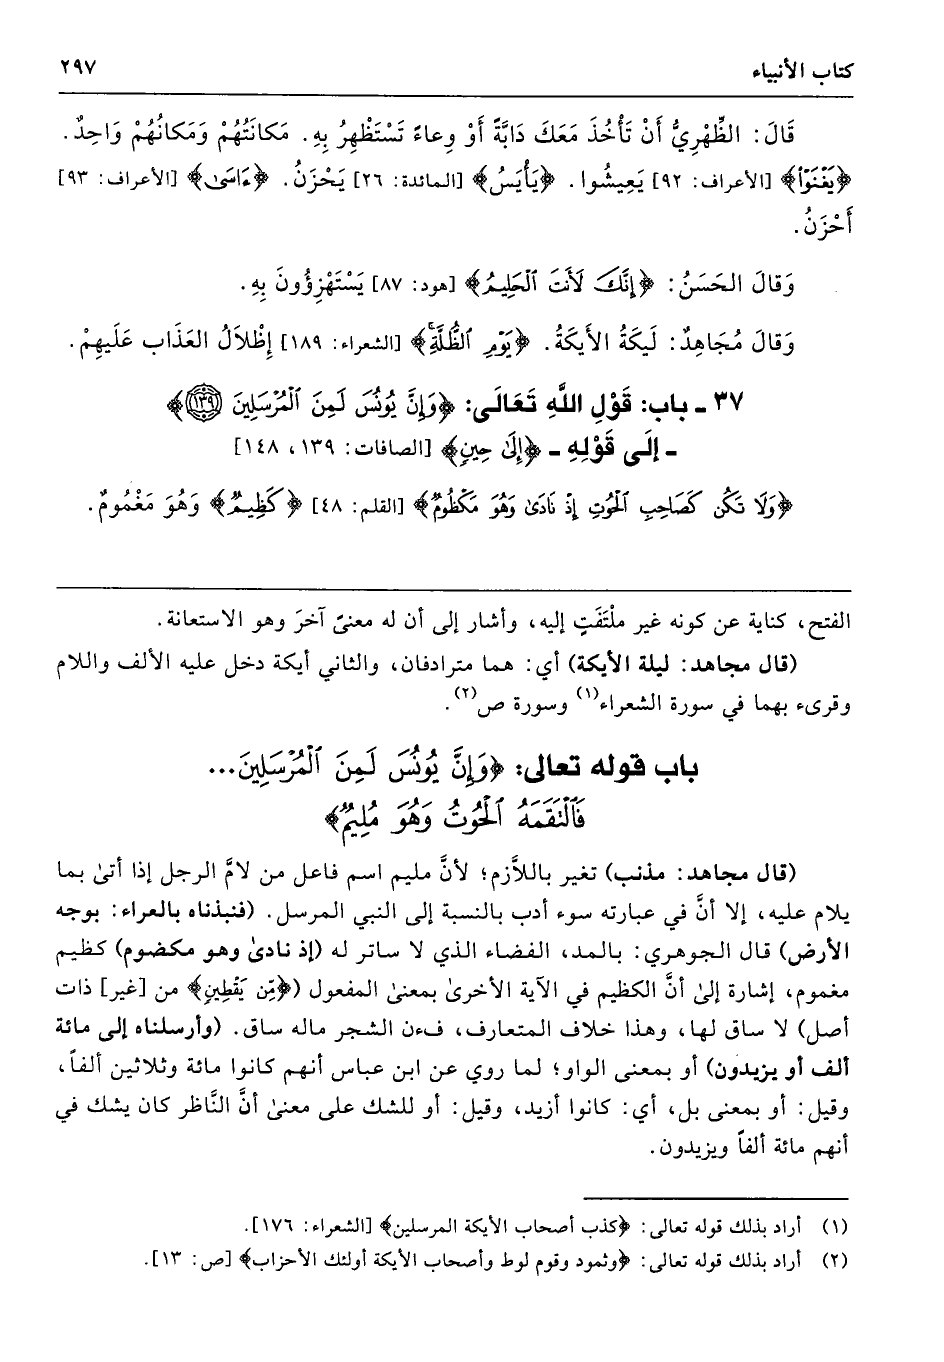 كتاب الأنبياء ٢٩٧
قَالَ: الظِّهْرِيُّ أَنْ تَأْخُذَ مَعَكَ دَابَّةً أَوْ وِعاءً تَسْتَظْهِرُ بِهِ. مَكانَتُهُمْ وَمَكانُهُمْ وَاحِدٌ.
﴿يَغْنَوْا﴾ [الأعراف: ٩٢] يَعِيشُوا. ﴿يَأْيَسُ﴾ [المائدة: ٢٦] يَحْزَنُ. ﴿ءَاسَى﴾ [الأعراف: ٩٣]
أَحْزَنُ.
وَقالَ الحَسَنُ: ﴿إِنَّكَ لَأَنتَ ٱلْحَلِيمُ﴾ [هود: ٨٧] يَسْتَهْزِؤُونَ بِهِ.
وَقالَ مُجَاهِدٌ: لَيكَةُ الأَيكَةُ. ﴿يَوْمِ ٱلظُّلَّةِۚ﴾ [الشعراء: ١٨٩] إِظْلاَلُ العَذَاب عَلَيهِمْ.
٣٧ ـ باب: قَوْلِ اللَّهِ تَعَالَى: ﴿وَإِنَّ يُونُسَ لَمِنَ ٱلْمُرْسَلِينَ ١٣٩﴾
ـ إِلَى قَوْلِهِ ـ ﴿إِلَىٰ حِينٍ﴾ [الصافات: ١٣٩، ١٤٨]
﴿وَلَا تَكُن كَصَاحِبِ ٱلْحُوتِ إِذْ نَادَىٰ وَهُوَ مَكْظُومٌ﴾ [القلم: ٤٨] ﴿كَظِيمٌ﴾ وَهُوَ مَغْمُومٌ.
الفتح، كناية عن كونه غير ملْتَفَتٍ إليه، وأشار إلى أن له معنىً آخرَ وهو الاستعانة.
(قال مجاهد: ليلة الأيكة) أي: هما مترادفان، والثاني أيكة دخل عليه الألف واللام
وقرىء بهما في سورة الشعراء(١) وسورة ص(٢).
باب قوله تعالى: ﴿وَإِنَّ يُونُسَ لَمِنَ ٱلْمُرْسَلِينَ...
فَٱلْتَقَمَهُ ٱلْحُوتُ وَهُوَ مُلِيمٌ﴾
(قال مجاهد: مذنب) تغير باللاَّزم؛ لأنَّ مليم اسم فاعل من لامَّ الرجل إذا أتىٰ بما
يلام عليه، إلا أنَّ في عبارته سوء أدب بالنسبة إلى النبي المرسل. (فنبذناه بالعراء: بوجه
الأرض) قال الجوهري: بالمد، الفضاء الذي لا ساتر له (إذ نادىٰ وهو مكضوم) كظيم
مغموم، إشارة إلىٰ أنَّ الكظيم في الآية الأخرىٰ بمعنىٰ المفعول (﴿مِّن يَقْطِينٍ﴾ من [غير] ذات
أصل) لا ساق لها، وهذا خلاف المتعارف، فءن الشجر ماله ساق. (وأرسلناه إلى مائة
ألف أو يزيدون) أو بمعنى الواو؛ لما روي عن ابن عباس أنهم كانوا مائة وثلاثين ألفاً،
وقيل: أو بمعنى بل، أي: كانوا أزيد، وقيل: أو للشك على معنىٰ أنَّ النَّاظر كان يشك في
أنهم مائة ألفاً ويزيدون.
(١) أراد بذلك قوله تعالى: ﴿كذب أصحاب الأيكة المرسلين﴾ [الشعراء: ١٧٦].
(٢) أراد بذلك قوله تعالى: ﴿وثمود وقوم لوط وأصحاب الأيكة أولئك الأحزاب﴾ [ص: ١٣].